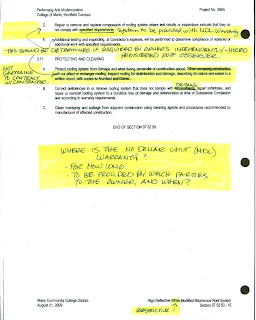 Performing Arts Modernization
College of Marin, Kentfield Campus
Project No. 308A
2. Repair or remove and replace components of roofing system where test results or inspections indicate that they do
not comply with specified requirements. System to be provided with NDL Warranty
THIS SHOULD BE DETERMINED IF REQUIRED BY OWNER'S INDEPENDENTLY-HIRED
REGISTERED ROOF OBSERVER.
Additional testing and inspecting, at Contractor's expense, will be performed to determine compliance of replaced or
additional work with specified requirements.
3.11 PROTECTING AND CLEANING
NOT
GERMANE
TO CONTRACT
W/CONTRACTOR
A. Protect roofing system from damage and wear during remainder of construction period. When remaining construction
will not affect or endanger roofing, inspect roofing for deterioration and damage, describing its nature and extent in a
written report, with copies to Architect and Owner.
Correct deficiencies in or remove roofing system that does not comply with requirements, repair substrates, and
repair or reinstall roofing system to a condition free of damage and deterioration at time of Substantial Completion
and according to warranty requirements.
Clean overspray and spillage from adjacent construction using cleaning agents and procedures recommended by
manufacturer of affected construction.
END OF SECTION 07 52 00
WHERE IS THE NO DOLLAR LIMIT (NDL)
WARRANTY?
FOR HOW LONG
TO BE PROVIDED BY WHICH PARTIES
TO THE OWNER, AND WHEN?
Marin Community College District
August 21, 2009
High Reflective White Modified Bituminous Roof System
Section 07 52 00 - 15